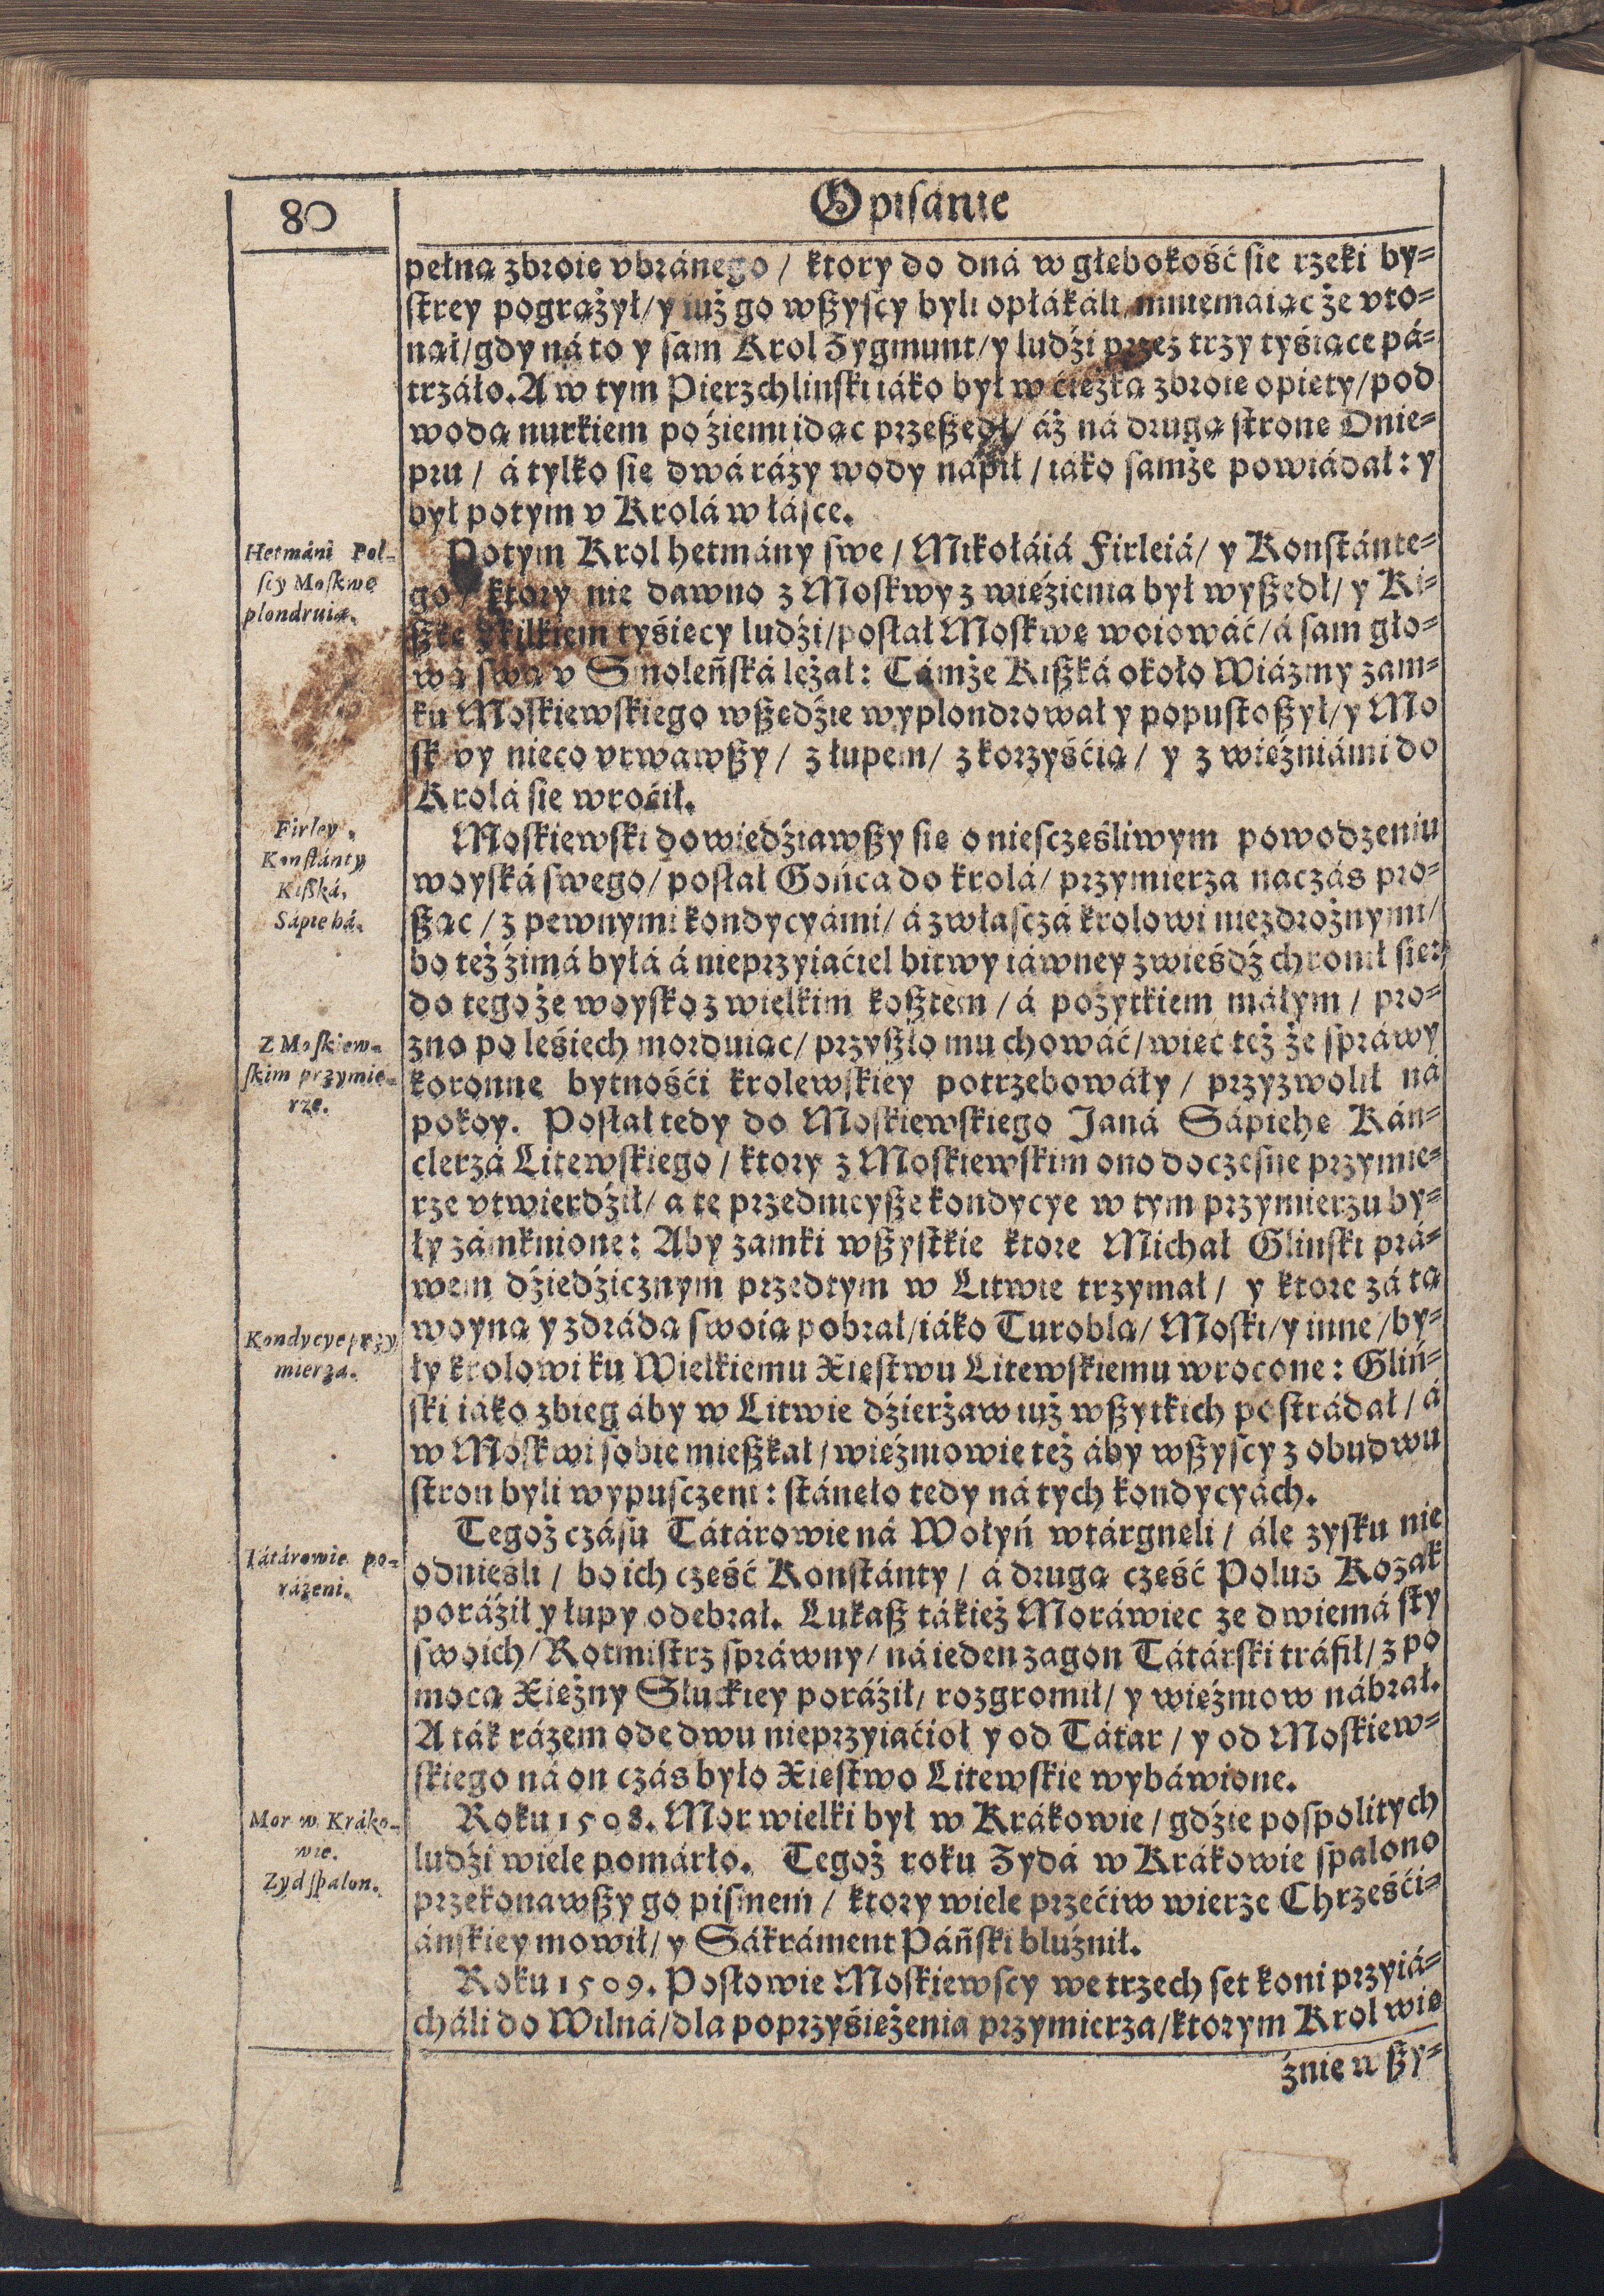 80
Opisánie
pełną zbroię vbránego / ktory do dná w głębokość się rzeki by-
strey pogrążył / y iuż go wszyscy byli opłákáli mniemaiąc że vto-
nął / gdy ná to y sam Krol Zygmunt / y ludźi przez trzy tyśiące pá-
trzáło. A w tym Pierzchlinski iáko był w ćięzką zbroię opięty / pod
wodą nurkiem po źiemi idąc przeszedł / áż ná drugą stronę Dnie-
pru / á tylko się dwá rázy wody nápił / iáko samże powiádał: y
był potym v Krolá w łásce.
Hetmáni Pol-
scy Moskwę
plondruią.
Potym Krol hetmány swe / Mikołáiá Firleiá / y Konstánte-
go / ktory nie dawno z Moskwy z więźienia był wyszedł / y Ki-
szkę z kilkiem tyśięcy ludźi / posłał Moskwę woiowáć / á sam gło-
wą swą v Smoleńská leżał: Támże Kiszká około Wiázmy zam-
ku Moskiewskiego wszędźie wyplondrował y popustoszył / y Mo
skwy nieco vrwawszy / z łupem / z korzyśćią / y z więźniámi do
Krolá się wroćił.
Firley,
Konstánty,
Kiszká,
Sápiehá.
Moskiewski dowiedźiawszy się o niesczęśliwym powodzeniu
woyská swego / posłał Gońca do krolá / przymierza náczás pro-
sząc / z pewnymi kondycyámi / á zwłasczá krolowi niezdrożnymi /
bo też źimá byłá á nieprzyiaćiel bitwy iáwney zwieśdź chronił się:
do tego że woysko z wielkim kosztem / á pożytkiem máłym / pro-
zno po leśiech morduiąc / przyszło mu chowáć / więc też że spráwy
Z Moskiew-
skim przymie-
rze.
koronne bytnośći krolewskiey potrzebowáły / przyzwolił ná
pokoy. Posłał tedy do Moskiewskiego Janá Sápiehę Kán-
clerzá Litewskiego / ktory z Moskiewskim ono doczesne przymie-
rze vtwierdźił / a te przednieysze kondycye w tym przymierzu by-
ły zámknione: Aby zamki wszystkie ktore Michał Glinski prá-
wem dźiedźicznym przedtym w Litwie trzymał / y ktore zá tą
Kondycye przy
mierza.
woyną y zdrádą swoią pobrał / iáko Turobla / Moski / y inne / by-
ły krolowi ku Wielkiemu Xięstwu Litewskiemu wrocone: Gliń-
ski iáko zbieg áby w Litwie dźierżaw iuż wszytkich postrádał / á
w Moskwi sobie mieszkał / więźniowie też áby wszyscy z obudwu
stron byli wypusczeni: stánęło tedy ná tych kondycyách.
Tátárowie po-
rázeni.
Tegoż czásu Tátárowie ná Wołyń wtárgnęli / ále zysku nie
odnieśli / bo ich część Konstánty / á drugą część Polus Kozak
poráźił y łupy odebrał. Lukasz tákież Moráwiec ze dwiemá sty
swoich / Rotmistrz spráwny / ná ieden zagon Tátárski tráfił / z po
mocą Xiężny Słuckiey poráźił / rozgromił / y więźniow nábrał.
A ták rázem ode dwu nieprzyiaćioł y od Tátar / y od Moskiew-
skiego ná on czás było Xięstwo Litewskie wybáwione.
Mor w Kráko-
wie.
Zyd spalon.
Roku 1508. Mor wielki był w Krákowie / gdźie pospolitych
ludźi wiele pomárło. Tegoż roku Zydá w Krákowie spalono
przekonawszy go pismem / ktory wiele przećiw wierze Chrześći-
ánskiey mowił / y Sákráment Páński bluźnił.
Roku 1509. Posłowie Moskiewscy we trzech set koni przyiá-
cháli do Wilná / dla poprzyśiężenia przymierza / ktorym Krol wię
źnie wszy-